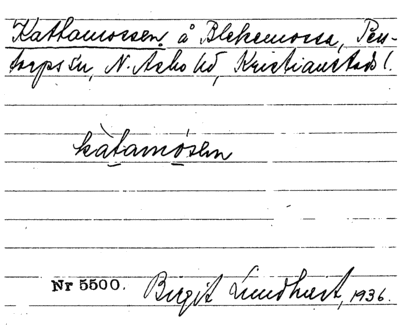 Kattamossen å Blekemossa, Per-
torps sn, N. Asbo hd, Kristianstads l.
kàtamósen
Nr 5500. Birgit Lundkvist, 1936.